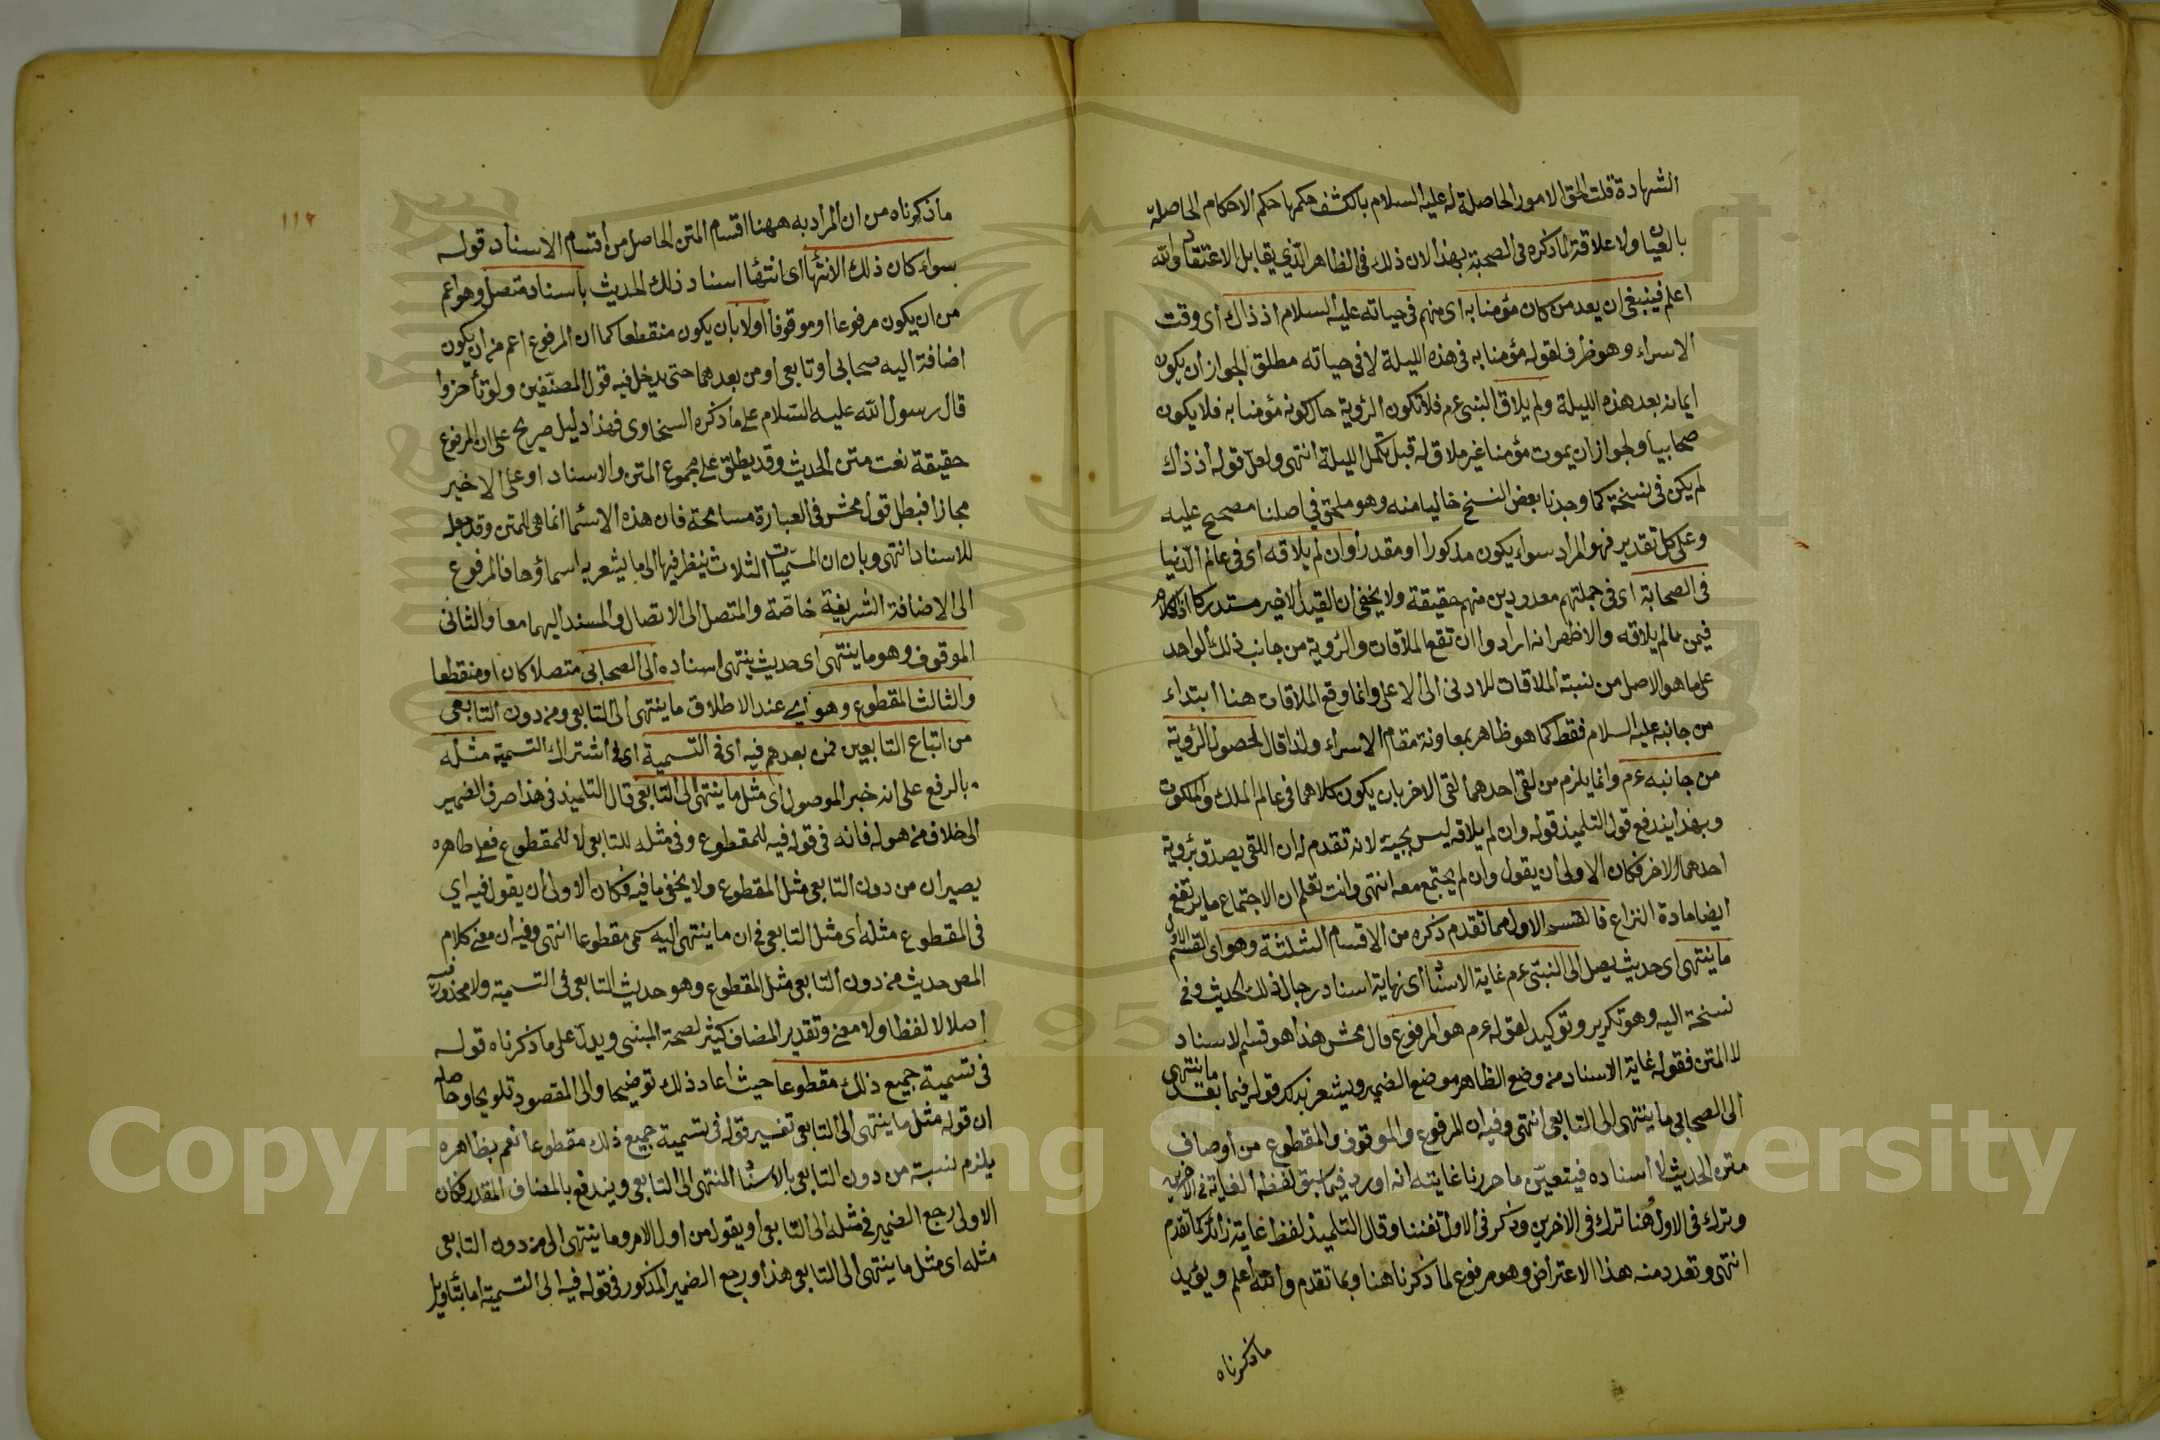 الشهادة قلت الحق الامور الحاصلة له عليه السلام بالكشف حكمها حكم الاحكام الحاصلة
بالعيان ولا علاقة لما ذكره في الصحبة بهذا لان ذلك في الظاهر الذي يقابل الاعتقاد والله
اعلم فينبغي ان يعد من كان مؤمنا به اي منهم في حياته عليه السلام اذ ذاك أي وقت
الاسراء وهو ظرف لقوله مؤمنا به في هذه الليلة لا في حياته مطلق الجواز أن يكون
ايمانه بعد هذه الليلة ولم يلاق النبي عم فلا تكون الرؤية حال كونه مؤمنا به فلا يكون
صحابيا ولجواز ان يموت مؤمنا غير ملاق له قبل تكمل الليلة انتهى ولعل قوله اذ ذاك
لم يكن في نسخة كما وجدنا بعض النسخ خاليا منه وهو ملحق في اصلنا مصحح عليه
وعلى كل تقدير فهو المراد سواء يكون مذكورا او مقدرا وان لم يلاقه اي في عالم الدنيا
في الصحابة اي في جملتهم معدودين منهم حقيقة ولا يخفى ان القيد الاخير مستدرك اذ الكلام
فيمن لم يلاقه والاظهر انه ارادوا ان تقع الملاقات والرؤية من جانب ذلك الواحد
على ما هو الاصل من نسبة الملاقات للادنى الى الاعلى وانما وقع الملاقات هنا ابتداء
من جانبه عليه السلام فقط كما هو ظاهر بمعاونة مقام الاسراء ولذا قال لحصول الرؤية
من جانبه عم وانما يلزم من لقى احدهما لقى الاخر بان يكون كلاهما في عالم الملك والملكوت
وبهذا يندفع قول التلميذ قوله وان لم يلاقه ليس بجيد لانه تقدم له ان اللقى يصدق برؤية
احدهما الاخر فكان الاولى أن يقول وان لم يجتمع معه انتهى وانت تعلم ان الاجتماع ما يرتفع
ايضا مادة النزاع فالقسم الاول مما تقدم ذكره من الاقسام الثلثة وهو اي القسم الاول
ما ينتهى اي حديث يصل الى النبي عم غاية الاسناد أي نهاية اسناد رجال ذلك الحديث وفي
نسخة اليه وهو تكرير وتوكيد لقوله عم هو المرفوع قال محش هذا هو قسم لاسناد
لا المتن فقوله غاية الاسناد من وضع الظاهر موضع الضمير ويشعر بذلك قوله فيما بعد ما ينتهى
الى الصحابي ما ينتهى الى التابعي انتهى وفيه ان المرفوع والموقوف والمقطوع من أوصاف
متن الحديث لا أسناده فيتعين ما حررنا غايته انه اورد فيما سبق لفظ الغاية في الاخرين
وترك في الاول هنا ترك في الاخرين وذكر في الاول تفننا وقال التلميذ لفظ غاية زائد كما تقدم
انتهى وتعدد منه هذا الاعتراض وهو مرفوع لما ذكرنا هنا وبما تقدم والله اعلم ويؤيد
ما ذكرناه
١١٢
ما ذكرناه من ان المراد به ههنا اقسام المتن الحاصل من أقسام الاسناد قوله
سواء كان ذلك الانتهاء اي انتهاء اسناد ذلك الحديث باسناد متصل وهو اعم
من ان يكون مرفوعا او موقوفا أو لا بأن يكون منقطعا كما ان المرفوع اعم من ان يكون
اضافة اليه صحابي أو تابعي أو من بعدهما حتى يدخل فيه قول المصنفين ولو تأخروا
قال رسول الله عليه السلام على ما ذكره السخاوي فهذا دليل صريح على ان المرفوع
حقيقة نعت متن الحديث وقد يطلق على مجموع المتن والاسناد او على الاخير
مجازا فبطل قول محش في العبارة مسامحة فان هذه الاسماء انما هي للمتن وقد جعل
للاسناد انتهى وبان ان المسميات الثلاث ينظر فيها الى ما يشعر به اسماؤها فالمرفوع
الى الاضافة الشريفة خاصة والمتصل الى الاتصال والمسند اليهما معا والثاني
الموقوف وهو ما ينتهى اي حديث ينتهى اسناده الى الصحابي متصلا كان او منقطعا
والثالث المقطوع وهو اي عند الاطلاق ما ينتهى الى التابعي ومن دون التابعي
من اتباع التابعين فمن بعدهم فيه اي في التسمية اي في اشتراك التسمية مثله
بالرفع على انه خبر الموصول اي مثل ما ينتهى الى التابعي قال التلميذ في هذا صرف الضمير
الى خلاف من هو له فانه في قوله فيه للمقطوع وفي مثله للتابعي لا للمقطوع فعلى ظاهره
يصير ان من دون التابعي مثل المقطوع ولا يخفى ما فيه فكان الاولى أن يقول فيه اي
في المقطوع مثله اي مثل التابعي في ان ما ينتهى اليه سمى مقطوعا انتهى وفيه ان معنى كلام
المص حديث من دون التابعي مثل المقطوع وهو حديث التابعي في التسمية ولا محذور فيه
اصلا لا لفظا ولا معنى وتقدير المضاف كثير لصحة المبنى ويدل على ما ذكرناه قوله
في تسمية جميع ذلك مقطوعا حيث اعاد ذلك توضيحا والى المقصود تلويحا وحاصله
ان قوله مثل ما ينتهى الى التابعي تفسير قوله في تسمية جميع ذلك مقطوعا نعم بظاهره
يلزم نسبة من دون التابعي بالاسناد المنتهى الى التابعي ويندفع بالمضاف المقدر فكان
الاولى رجع الضمير في مثله الى التابعي أو يقول من اول الامر وما ينتهى الى من دون التابعي
مثله اي مثل ما ينتهى الى التابعي هذا ورجع الضمير المذكور في قوله فيه الى التسمية اما بتاويل
Copyright © King Saud University
1957